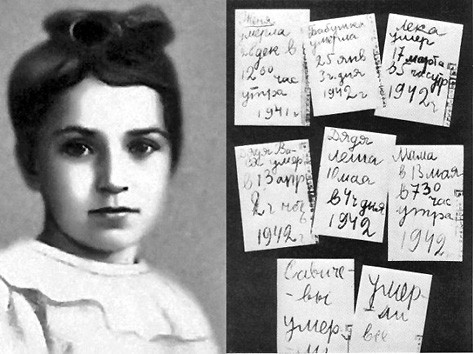 Женя
умерла
28 дек в
12 00 час
утра
1941 г
Бабушка
умерла
25 янв
3 ч. дня
1942 г
Лека
умер
17 марта
в 5 час утр
1942 г
Дядя Ва-
ся умер
в 13 апр
2 ч ноч
1942 г
Дядя
Леша
10 мая
в 4 ч дня
1942
Мама
в 13 мая
в 7 30
час
утра
1942
Савиче-
-вы
умер
ли
умер-
ли
все